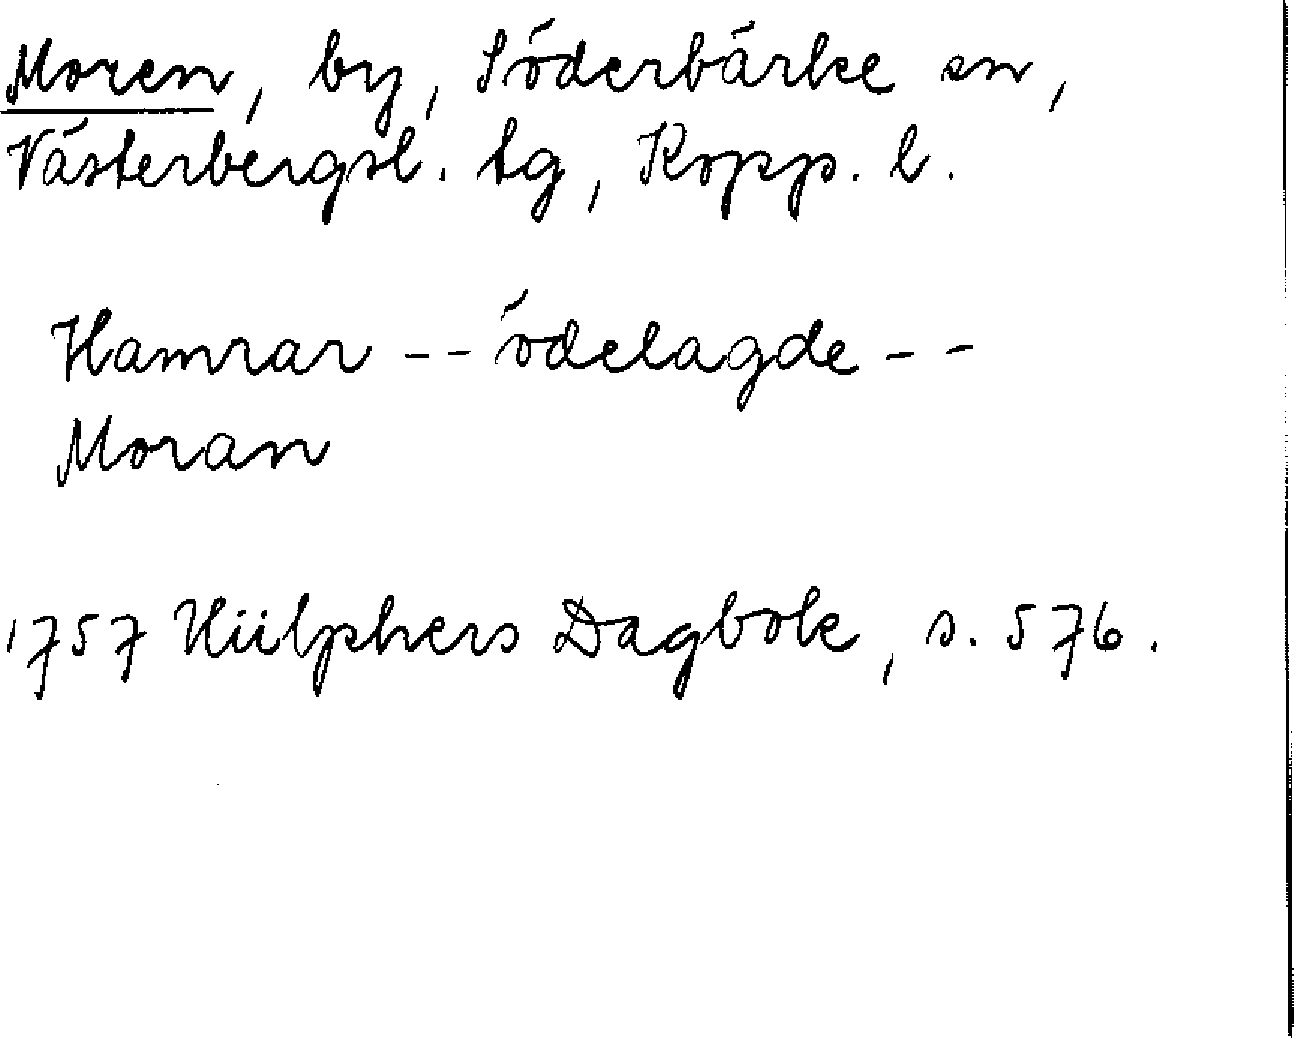 Moren, by, Söderbärke sn,
Västerbergsl. tg, Kopp. l.
Hamrar -- ödelagde --
Moran
1757 Hülphers Dagbok, s. 576.